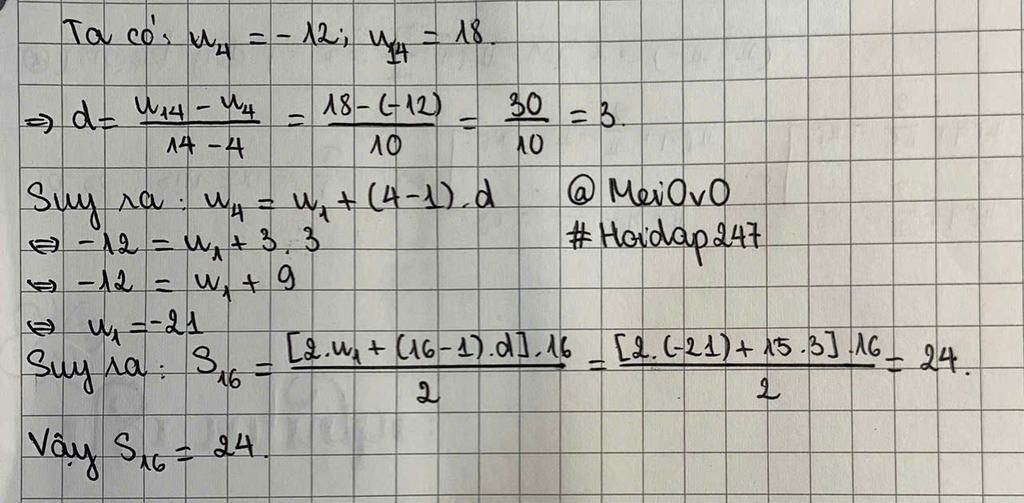 Ta có: u₄ = -12; u₁₄ = 18.
⇒ d = (u₁₄ - u₄)/(14 - 4) = (18 - (-12))/10 = 30/10 = 3.
Suy ra: u₄ = u₁ + (4-1).d @MeiOvO
⇔ -12 = u₁ + 3.3 #Hoidap247
⇔ -12 = u₁ + 9
⇔ u₁ = -21
Suy ra: S₁₆ = [2.u₁ + (16-1).d].16/2 = [2.(-21) + 15.3].16/2 = 24.
Vậy S₁₆ = 24.